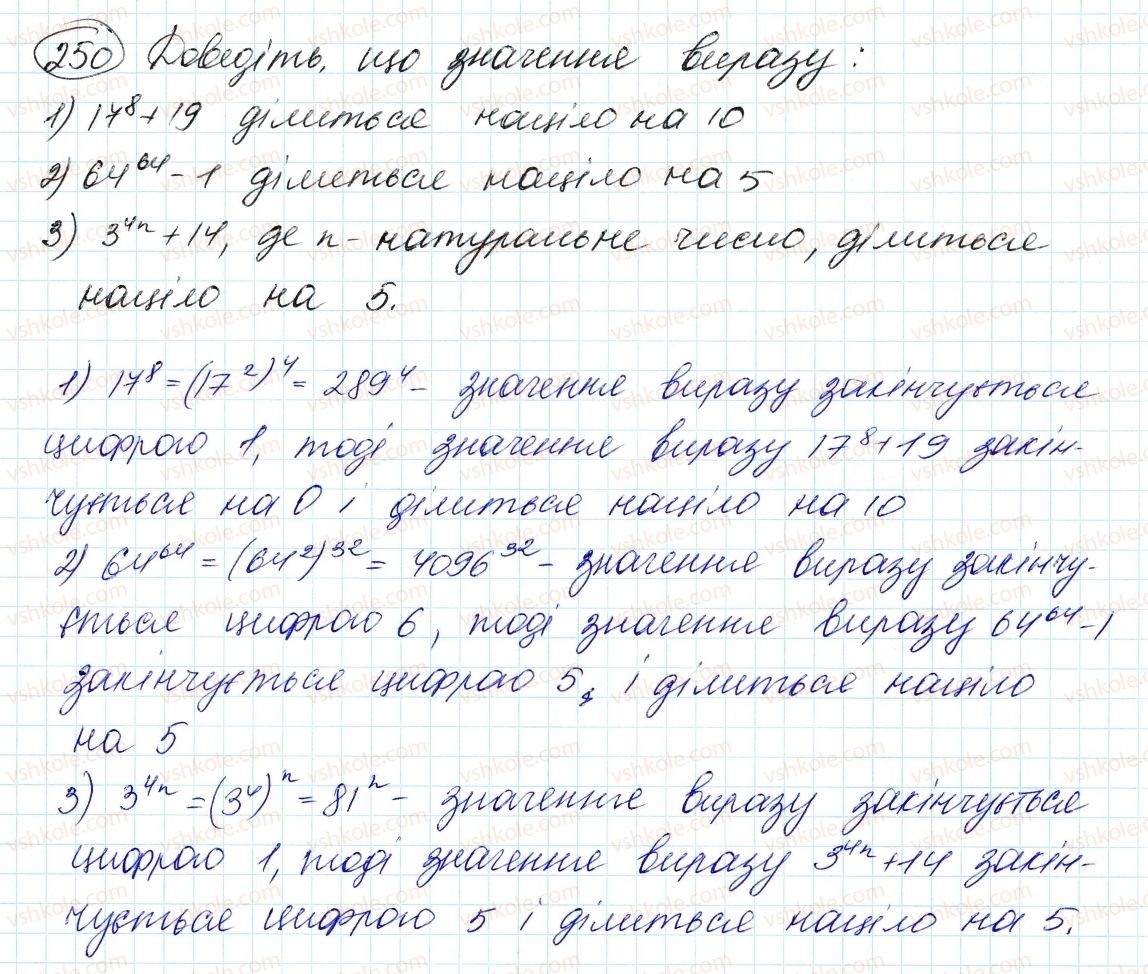 250 Доведіть, що значення виразу:
1) 17⁸+19 ділиться націло на 10
2) 64⁶⁴-1 ділиться націло на 5
3) 3⁴ⁿ+14, де n - натуральне число, ділиться
націло на 5.
1) 17⁸=(17²)⁴=289⁴- значення виразу закінчується
цифрою 1, тоді значення виразу 17⁸+19 закін-
чується на 0 і ділиться націло на 10
2) 64⁶⁴=(64²)³²=4096³²- значення виразу закінчу-
ється цифрою 6, тоді значення виразу 64⁶⁴-1
закінчується цифрою 5, і ділиться націло
на 5
3) 3⁴ⁿ=(3⁴)ⁿ=81ⁿ- значення виразу закінчується
цифрою 1, тоді значення виразу 3⁴ⁿ+14 закін-
чується цифрою 5 і ділиться націло на 5.